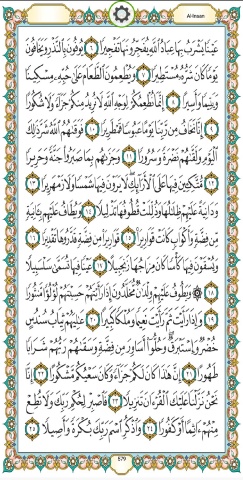 Al-Insan
عَيْنًا يَشْرَبُ بِهَا عِبَادُ اللَّهِ يُفَجِّرُونَهَا تَفْجِيرًا ٦ يُوفُونَ بِالنَّذْرِ وَيَخَافُونَ
يَوْمًا كَانَ شَرُّهُ مُسْتَطِيرًا ٧ وَيُطْعِمُونَ الطَّعَامَ عَلَىٰ حُبِّهِ مِسْكِينًا
وَيَتِيمًا وَأَسِيرًا ٨ إِنَّمَا نُطْعِمُكُمْ لِوَجْهِ اللَّهِ لَا نُرِيدُ مِنكُمْ جَزَاءً وَلَا شُكُورًا
٩ إِنَّا نَخَافُ مِن رَّبِّنَا يَوْمًا عَبُوسًا قَمْطَرِيرًا ١٠ فَوَقَاهُمُ اللَّهُ شَرَّ ذَٰلِكَ
الْيَوْمِ وَلَقَّاهُمْ نَضْرَةً وَسُرُورًا ١١ وَجَزَاهُم بِمَا صَبَرُوا جَنَّةً وَحَرِيرًا
١٢ مُتَّكِئِينَ فِيهَا عَلَى الْأَرَائِكِ لَا يَرَوْنَ فِيهَا شَمْسًا وَلَا زَمْهَرِيرًا ١٣
وَدَانِيَةً عَلَيْهِمْ ظِلَالُهَا وَذُلِّلَتْ قُطُوفُهَا تَذْلِيلًا ١٤ وَيُطَافُ عَلَيْهِم بِآنِيَةٍ
مِّن فِضَّةٍ وَأَكْوَابٍ كَانَتْ قَوَارِيرَا ١٥ قَوَارِيرَ مِن فِضَّةٍ قَدَّرُوهَا تَقْدِيرًا ١٦
وَيُسْقَوْنَ فِيهَا كَأْسًا كَانَ مِزَاجُهَا زَنجَبِيلًا ١٧ عَيْنًا فِيهَا تُسَمَّىٰ سَلْسَبِيلًا
١٨ ۞ وَيَطُوفُ عَلَيْهِمْ وِلْدَانٌ مُّخَلَّدُونَ إِذَا رَأَيْتَهُمْ حَسِبْتَهُمْ لُؤْلُؤًا مَّنثُورًا
١٩ وَإِذَا رَأَيْتَ ثَمَّ رَأَيْتَ نَعِيمًا وَمُلْكًا كَبِيرًا ٢٠ عَالِيَهُمْ ثِيَابُ سُندُسٍ
خُضْرٌ وَإِسْتَبْرَقٌ وَحُلُّوا أَسَاوِرَ مِن فِضَّةٍ وَسَقَاهُمْ رَبُّهُمْ شَرَابًا
طَهُورًا ٢١ إِنَّ هَٰذَا كَانَ لَكُمْ جَزَاءً وَكَانَ سَعْيُكُم مَّشْكُورًا ٢٢ إِنَّا
نَحْنُ نَزَّلْنَا عَلَيْكَ الْقُرْآنَ تَنزِيلًا ٢٣ فَاصْبِرْ لِحُكْمِ رَبِّكَ وَلَا تُطِعْ
مِنْهُمْ آثِمًا أَوْ كَفُورًا ٢٤ وَاذْكُرِ اسْمَ رَبِّكَ بُكْرَةً وَأَصِيلًا ٢٥
579